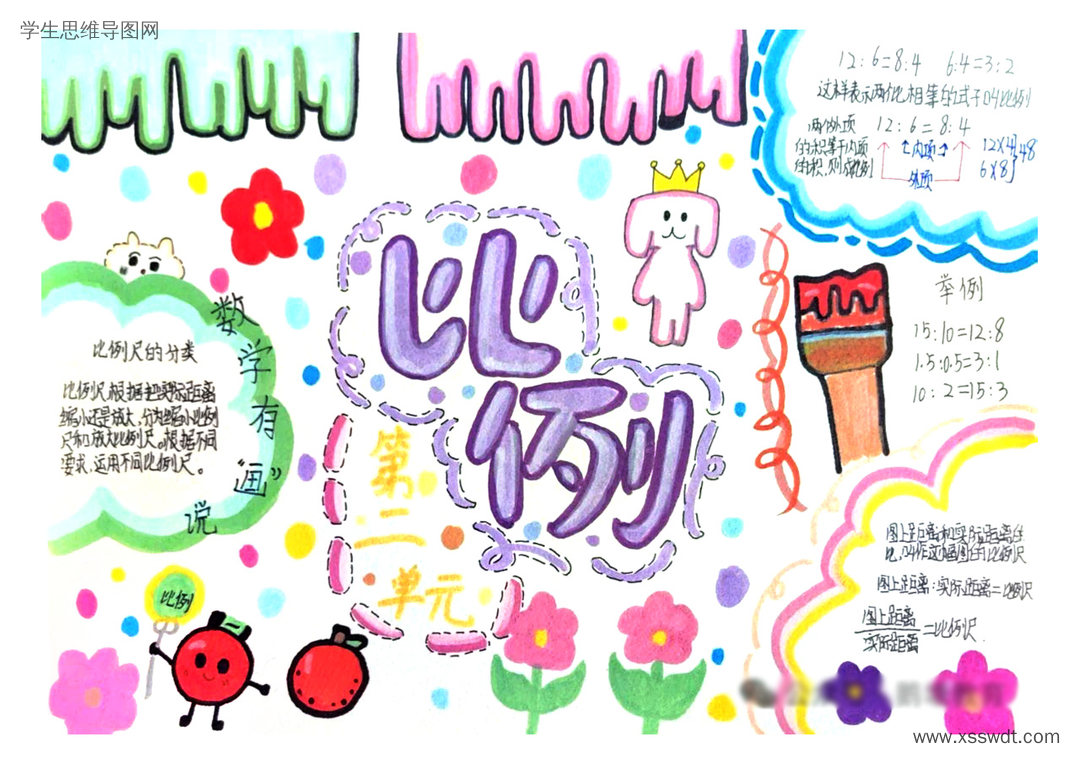 学生思维导图网
12:6=8:4 6:4=3:2
这样表示两个比相等的式子叫比例
两个外项
的积等于内项
的积,则成比例
12:6=8:4
内项
外项
12×4
6×8
48
比例
第二
单元
数学有"画"说
比例尺的分类
比例尺根据把实际距离
缩小还是放大,分为缩小比例
尺和放大比例尺。根据不同
要求,运用不同比例尺。
举例
15:10=12:8
1.5:0.5=3:1
10:2=15:3
图上距离和实际距离的
比,叫作这幅图的比例尺
图上距离:实际距离=比例尺
图上距离
实际距离
=比例尺.
比例
www.xsswdt.com